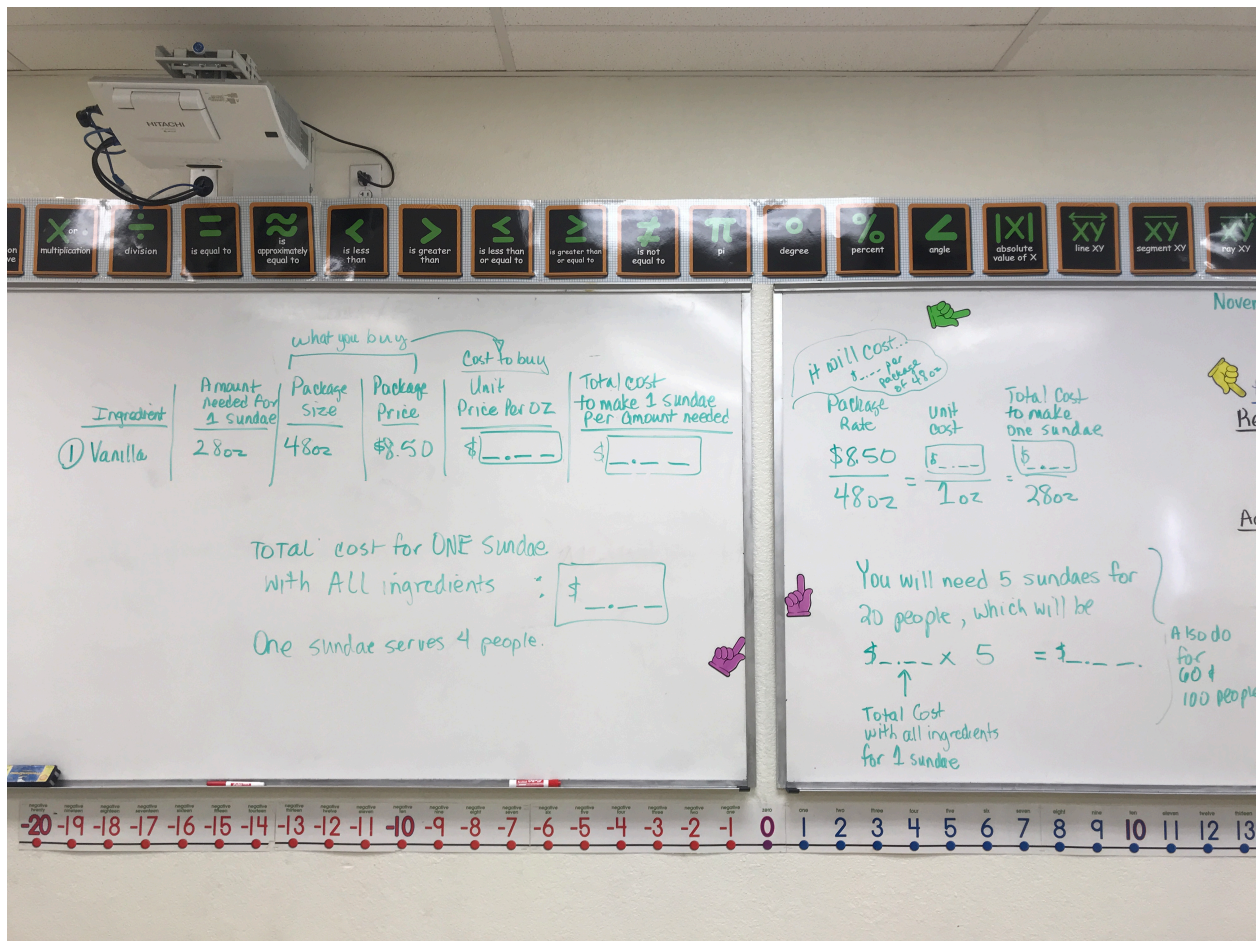 HITACHI
X or ·
multiplication
÷
division
=
is equal to
≈
is
approximately
equal to
<
is less
than
>
is greater
than
≤
is less than
or equal to
≥
is greater than
or equal to
≠
is not
equal to
π
pi
°
degree
%
percent
∠
angle
|X|
absolute
value of X
XY
line XY
XY
segment XY
XY
ray XY
what you buy
Cost to buy
Ingredient
Amount
needed for
1 sundae
Package
Size
Package
Price
Unit
Price Per OZ
Total cost
to make 1 sundae
Per Amount needed
① Vanilla
28oz
48oz
$8.50
$_.__
$_.__
TOTAL cost for ONE Sundae
with ALL ingredients : $_.__
One sundae serves 4 people.
it will cost...
$_.__ per
package
of 48oz
Package
Rate
Unit
cost
Total Cost
to make
one sundae
$8.50 $_.__ $_.__
48oz = 1oz = 28oz
You will need 5 sundaes for
20 people, which will be
$_.__ x 5 = $_.__.
Total Cost
with all ingredients
for 1 sundae
Also do
for
60 &
100 people
Nover
Re
-20 -19 -18 -17 -16 -15 -14 -13 -12 -11 -10 -9 -8 -7 -6 -5 -4 -3 -2 -1 0 1 2 3 4 5 6 7 8 9 10 11 12 13